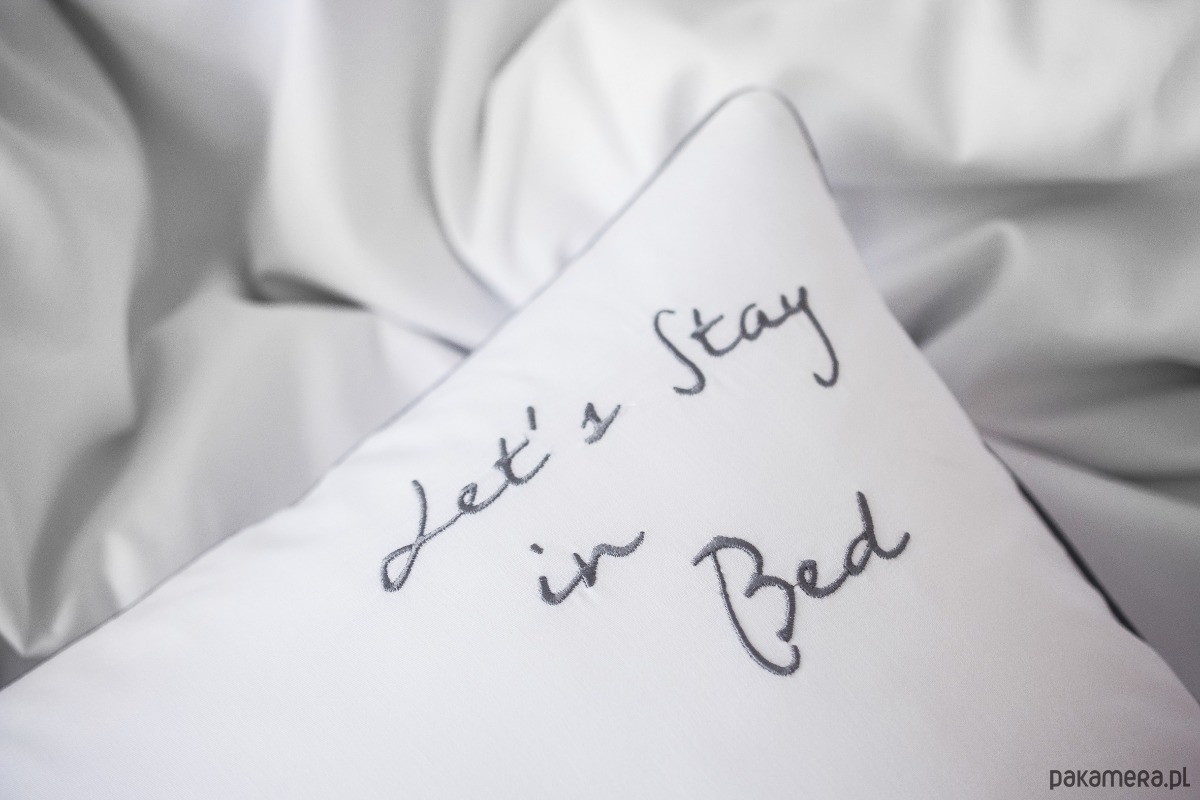 Let's Stay
in Bed
pakamera.pl